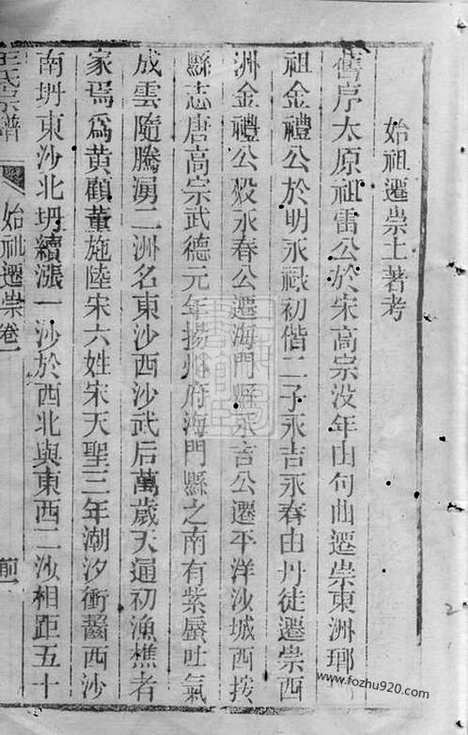 始祖遷崇土著考
舊序太原祖雷公於宋高宗没年由句曲遷崇東洲瑯
祖金禮公於明永禄初偕二子永吉永春由丹徒遷崇西
洲金禮公殁永春公遷海門縣永吉公遷平洋沙城西按
縣志唐高宗武德元年揚州府海門縣之南有紫蜃吐氣
成雲隨騰湧二洲名東沙西沙武后萬歲天通初漁樵者
家焉爲黄顧董施陸宋六姓宋天聖三年潮汐衝齧西沙
南坍東沙北坍續漲一沙於西北與東西二沙相距五十
王氏宗譜
始祖遷崇卷一
前一
www.fozhu920.com